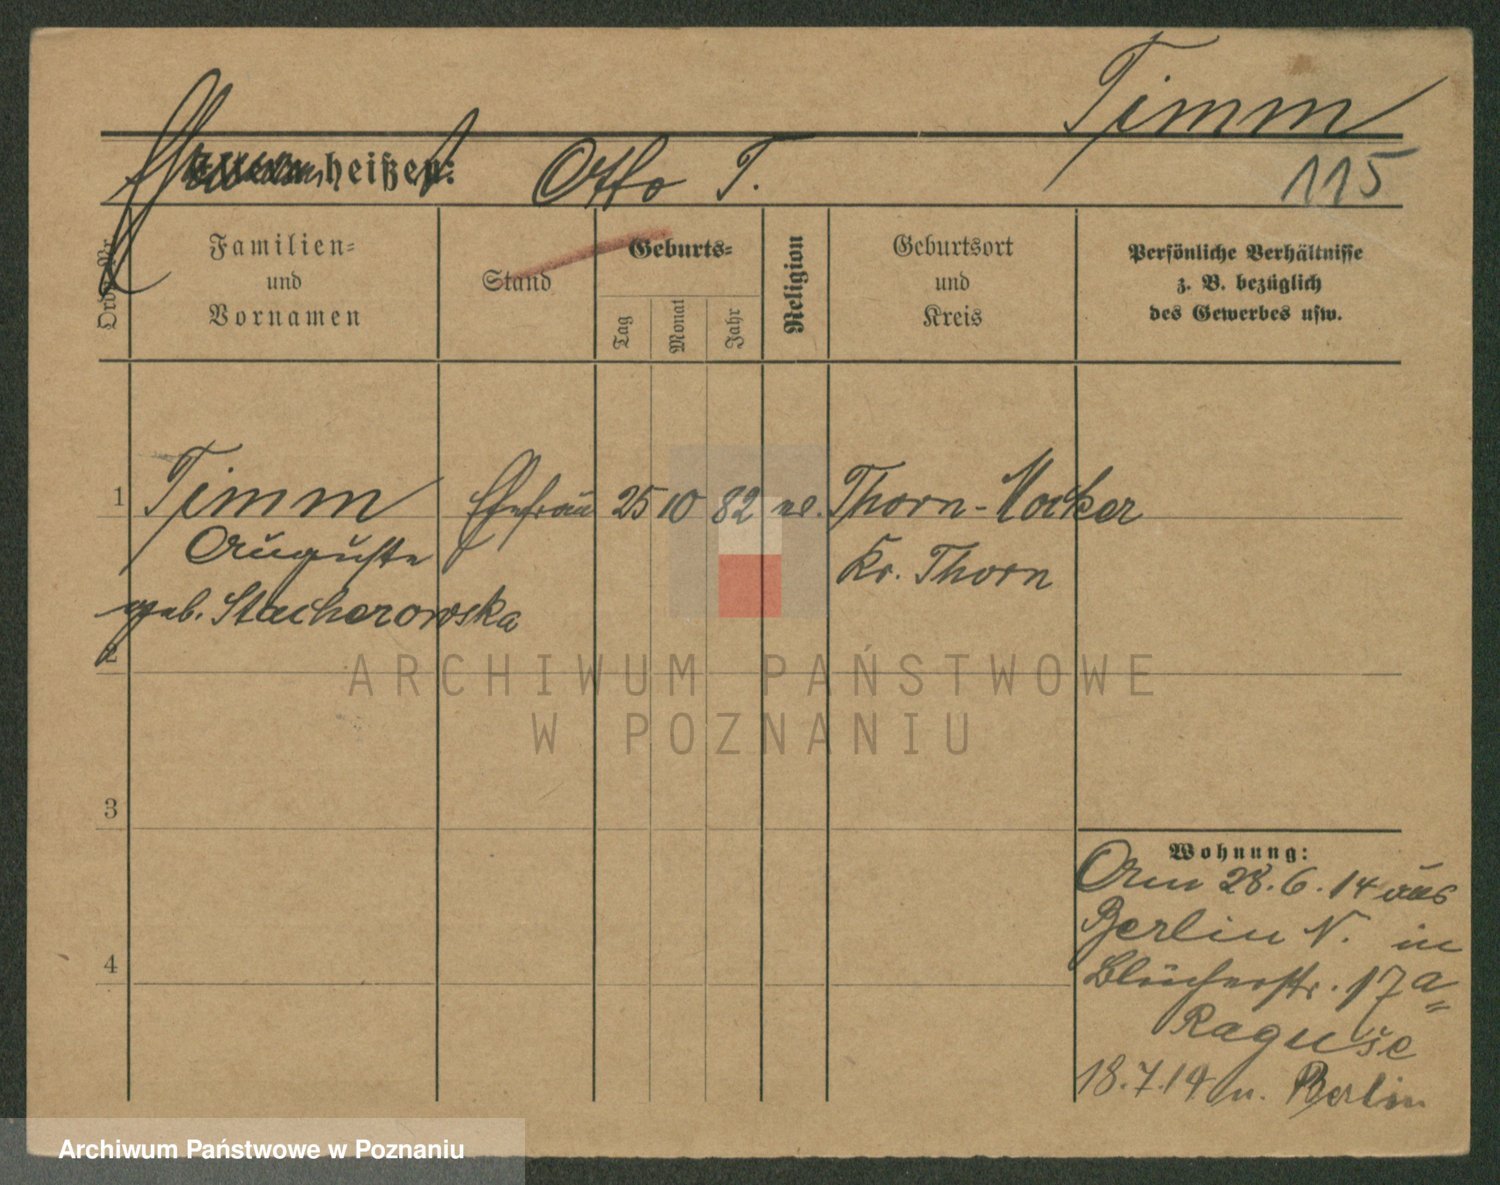 Timm
heißen: Otto T.
115
Ordn. Nr.
Familien-
und
Vornamen
Stand
Geburts-
Tag
Monat
Jahr
Religion
Geburtsort
und
Kreis
Persönliche Verhältnisse
z. B. bezüglich
des Gewerbes usw.
1 Timm Ehefrau 25 10 82 Thorn-Mocker
Auguste Kr. Thorn
geb. Stacherowska
2
ARCHIWUM PAŃSTWOWE
W POZNANIU
3
4
Wohnung:
Am 28.6.14 aus
Berlin N. in
Blücherstr. 17a
Raguse
18.7.14 n. Berlin
Archiwum Państwowe w Poznaniu